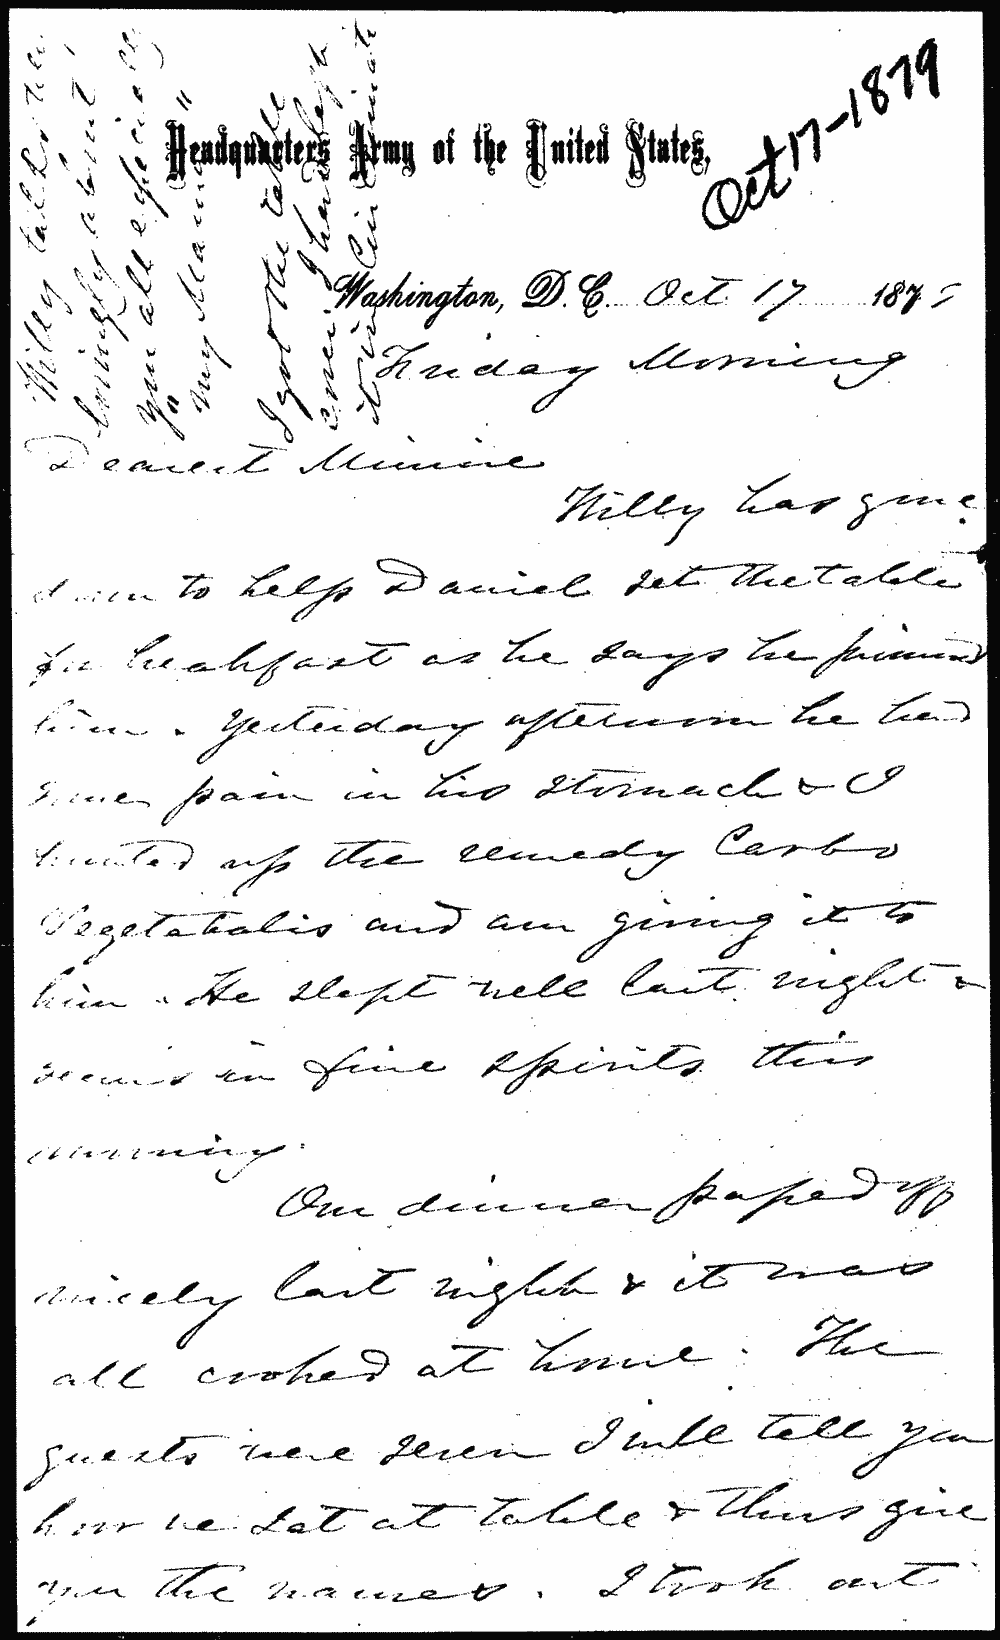 Headquarters Army of the United States,
Oct 17-1879
Washington, D.C. Oct 17 1879
Friday Morning
Dearest Minnie
Willy has gone
down to help Daniel set the table
for breakfast as he says he promised
him. Yesterday afternoon he had
some pain in his stomach & I
hunted up the remedy Carbo
Vegetabalis and am giving it to
him. He slept well last night &
seems in fine spirits this
morning.
Our dinner passed off
nicely last night & it was
all cooked at home. The
guests were seven I will tell you
how we sat at table & thus give
you the names. I took out
Willy talks so
lovingly about
you all especially
"my Mama"
I got the table
cover I have kept
it in Cincinnati